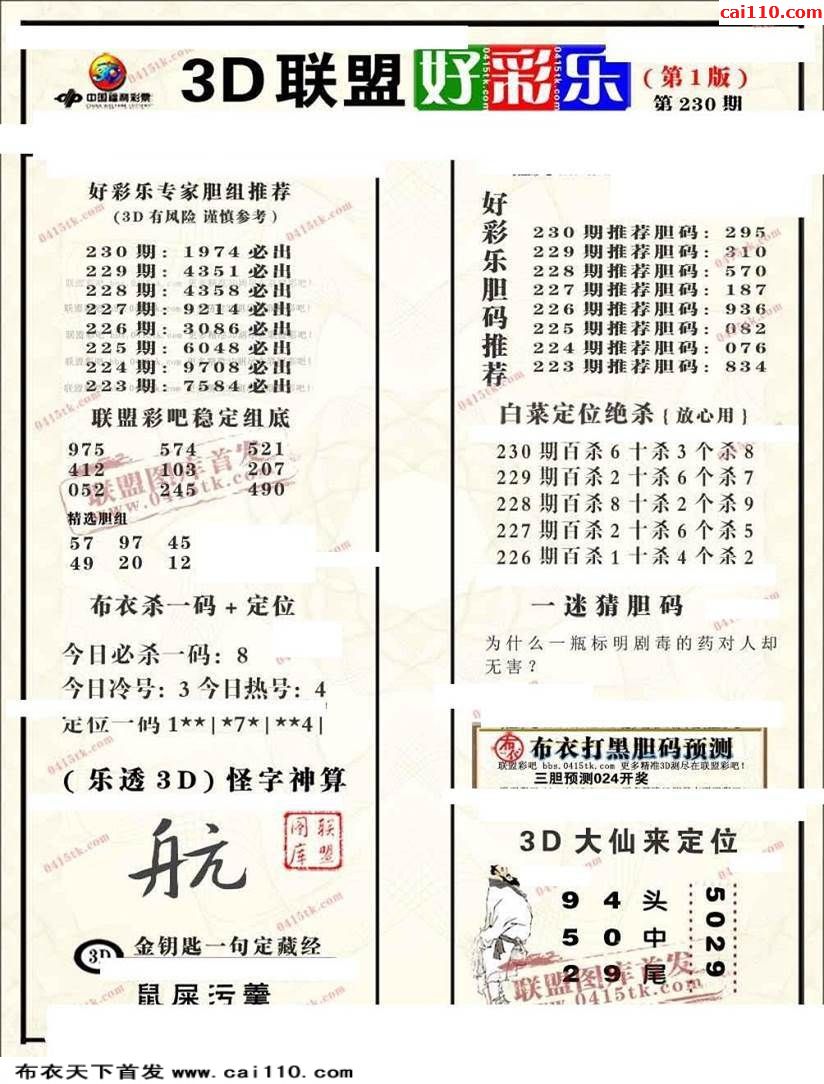 cai110.com
中国福利彩票
CHINA WELFARE LOTTERY
3D联盟好彩乐
0415tk.com
0415tk.com
0415tk.com
(第1版)
第230期
好彩乐专家胆组推荐
(3D有风险 谨慎参考)
230期: 1974必出
229期: 4351必出
228期: 4358必出
227期: 9214必出
226期: 3086必出
225期: 6048必出
224期: 9708必出
223期: 7584必出
联盟彩吧稳定组底
975 574 521
412 103 207
052 245 490
精选胆组
57 97 45
49 20 12
联盟图库首发
www.0415tk.com
布衣杀一码+定位
今日必杀一码: 8
今日冷号: 3 今日热号: 4
定位一码 1**|*7*|**4|
(乐透3D)怪字神算
航
联盟图库
3D
金钥匙一句定藏经
鼠屎污羹
好彩乐胆码推荐
230期推荐胆码: 295
229期推荐胆码: 310
228期推荐胆码: 570
227期推荐胆码: 187
226期推荐胆码: 936
225期推荐胆码: 082
224期推荐胆码: 076
223期推荐胆码: 834
白菜定位绝杀{放心用}
230期百杀6十杀3个杀8
229期百杀2十杀6个杀7
228期百杀8十杀2个杀9
227期百杀2十杀6个杀5
226期百杀1十杀4个杀2
一迷猜胆码
为什么一瓶标明剧毒的药对人却
无害?
布衣
布衣打黑胆码预测
联盟彩吧 bbs.0415tk.com 更多精准3D测尽在联盟彩吧!
三胆预测024开奖
3D大仙来定位
9 4 头
5 0 中
2 9 尾
5029
联盟图库首发
www.0415tk.com
布衣天下首发 www.cai110.com